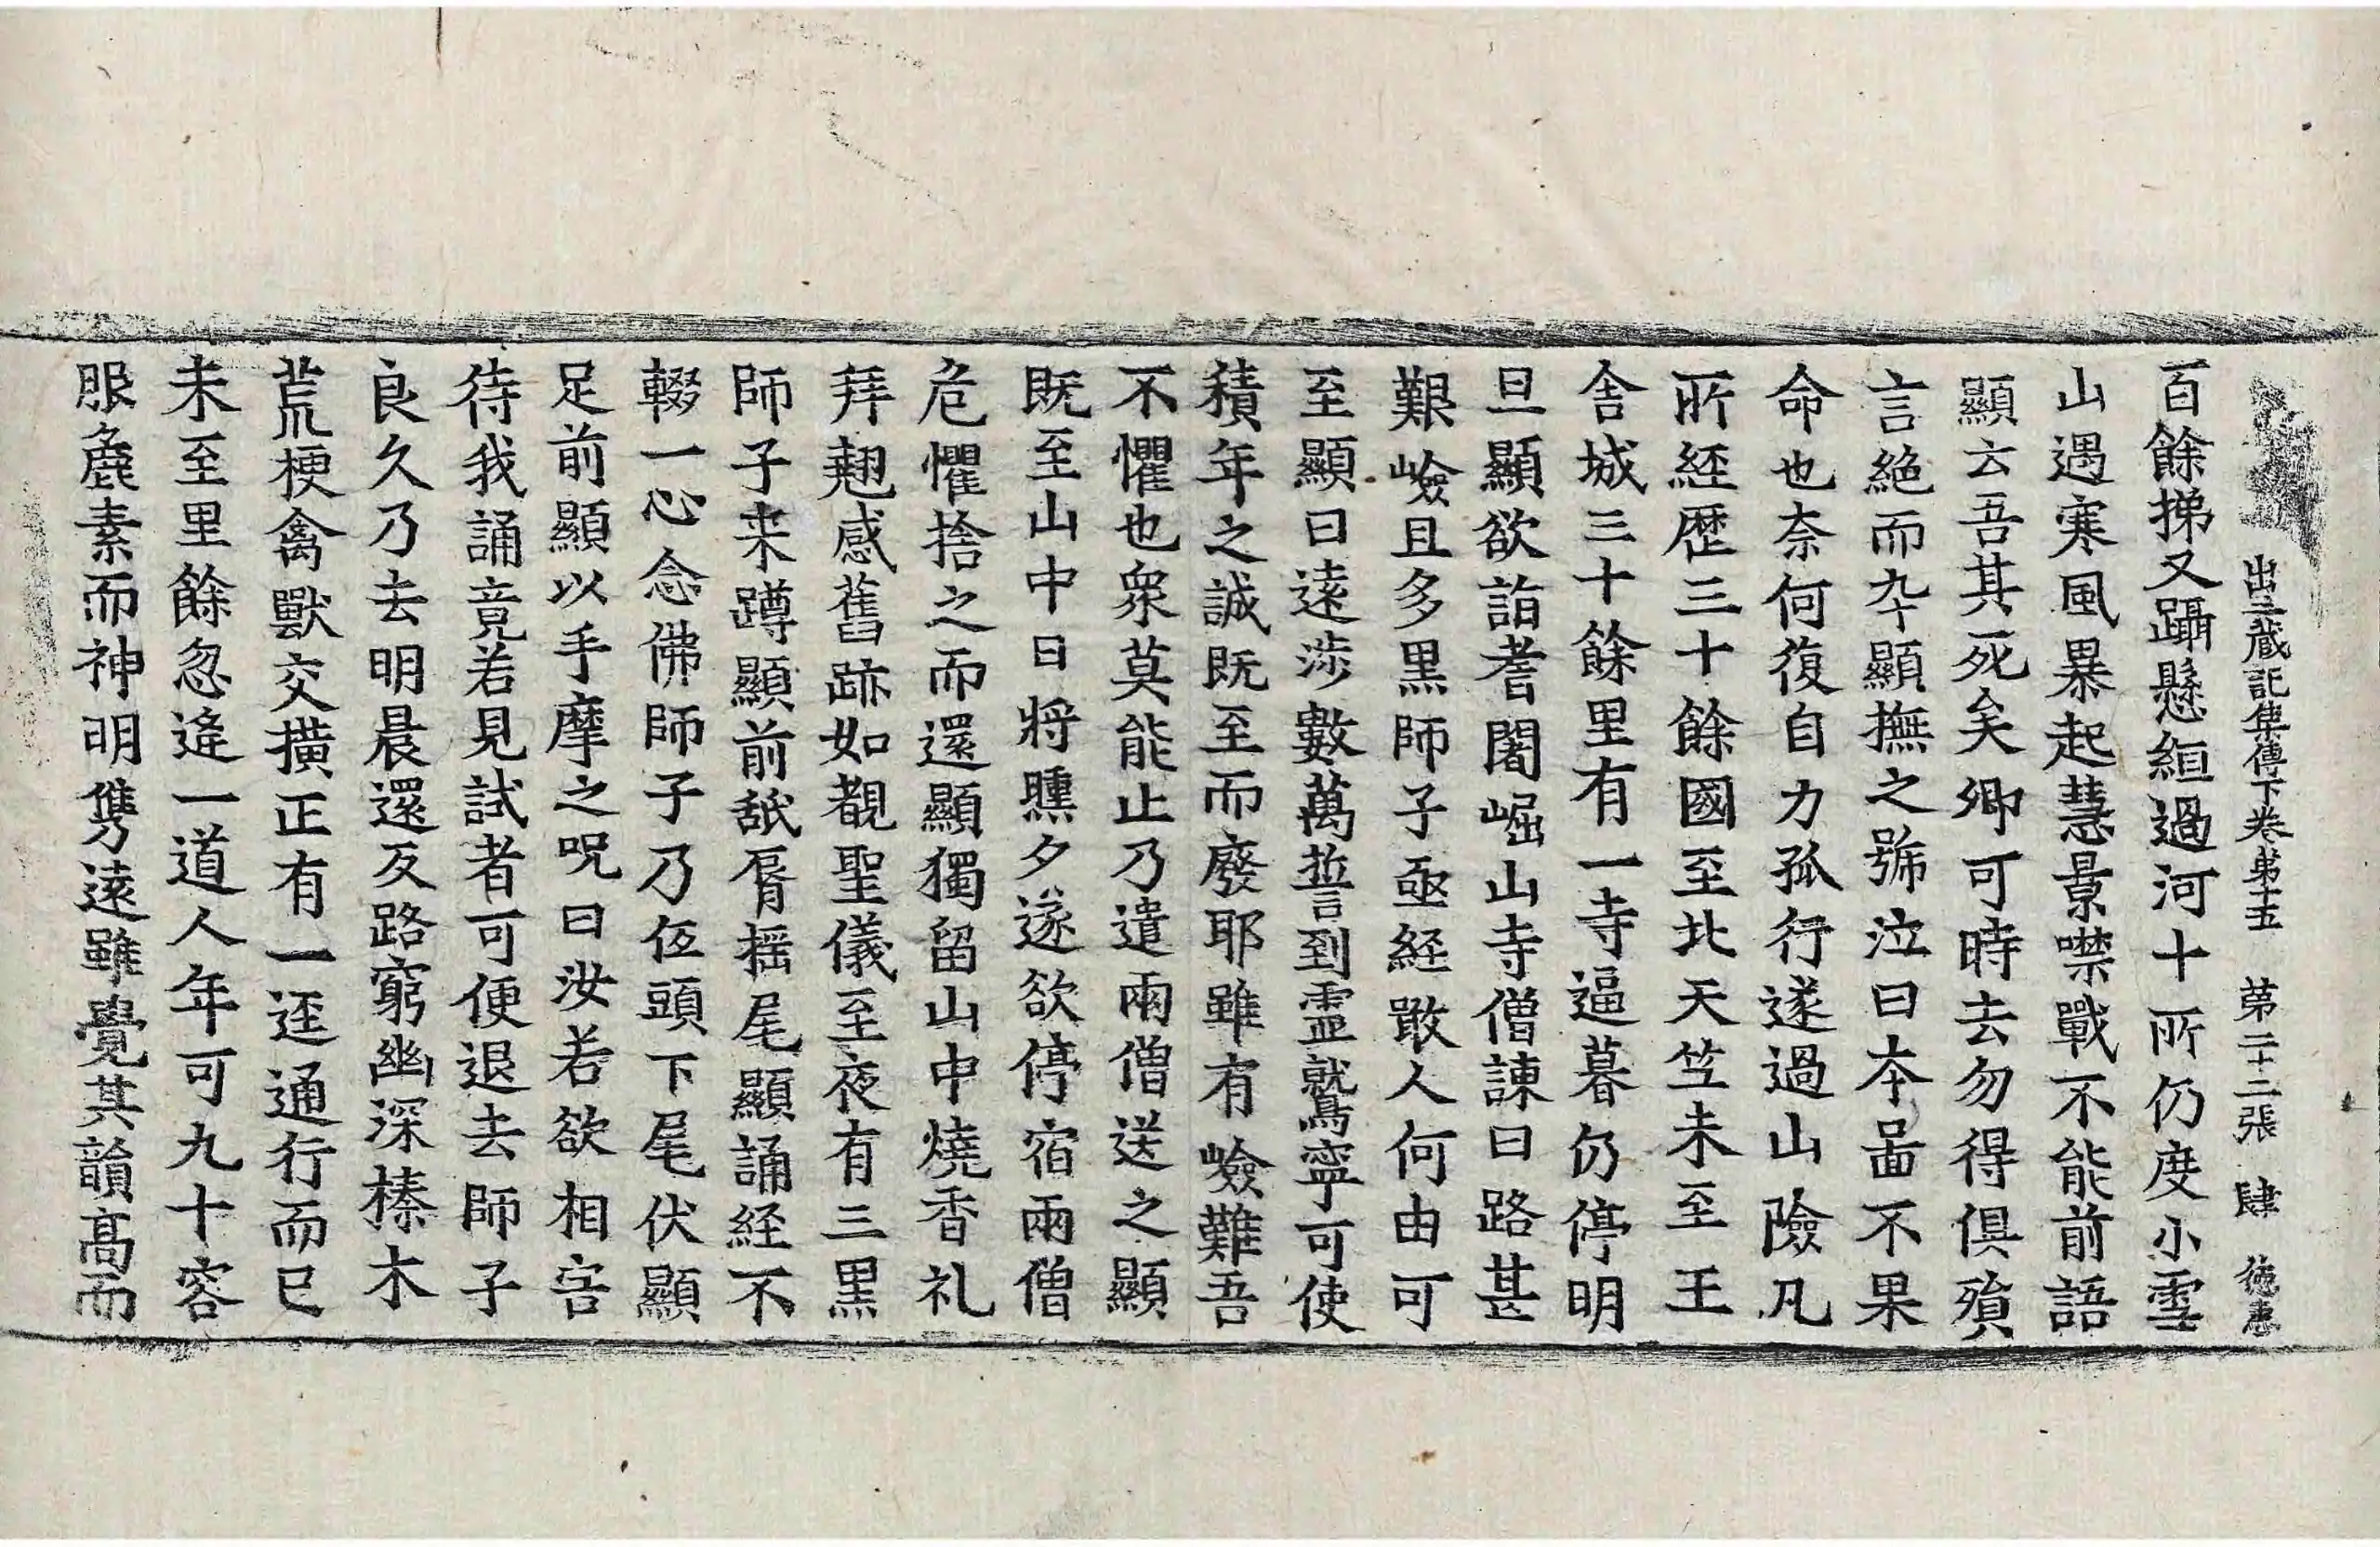 出三蔵記集傳下卷苐十五 苐二十二張 肆 徳惠
百餘挮又躡懸絙過河十所仍度小雪
山遇寒風暴起慧景噤戰不能前語
顯云吾其死矣卿可時去勿得俱殞
言絶而卒顯撫之號泣曰本啚不果
命也奈何復自力孤行遂過山險凡
所經歷三十餘國至北天竺未至王
舍城三十餘里有一寺逼暮仍停明
旦顯欲詣耆闍崛山寺僧諫曰路甚
艱嶮且多黑師子亟経噉人何由可
至顯曰遠涉數萬誓到靈鷲寧可使
積年之誠既至而廢耶雖有嶮難吾
不懼也衆莫能止乃遣兩僧送之顯
既至山中日將曛夕遂欲停宿兩僧
危懼捨之而還顯獨留山中燒香礼
拜翹感舊跡如覩聖儀至夜有三黑
師子来蹲顯前舐脣揺尾顯誦経不
輟一心念佛師子乃伍頭下尾伏顯
足前顯以手摩之呪曰汝若欲相害
待我誦竟若見試者可便退去師子
良久乃去明晨還反路窮幽深榛木
荒梗禽獸交撗正有一迳通行而已
未至里餘忽逢一道人年可九十容
服麁素而神明雋遠雖覺其韻髙而